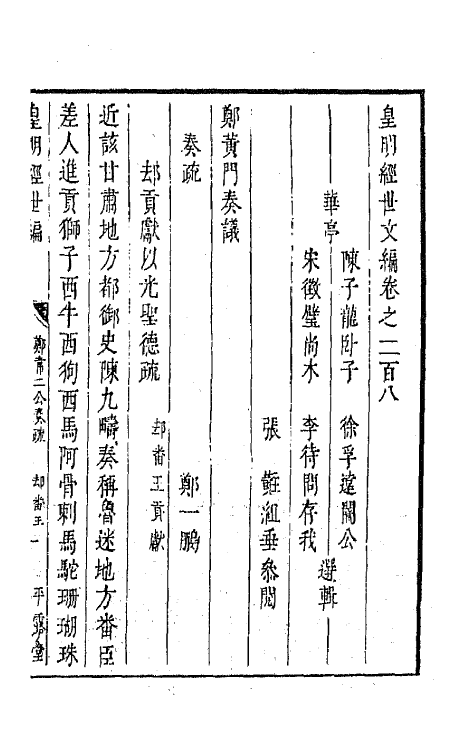 皇明經世文編卷之二百八
華亭
陳子龍臥子 徐孚遠闇公
宋徵璧尚木 李待問存我
選輯
張 蘊組垂參閱
鄭黃門奏議
奏疏 鄭一鵬
却貢獻以光聖德疏 却番王貢獻
近該甘肅地方都御史陳九疇奏稱魯迷地方番臣
差人進貢獅子西牛西狗西馬阿骨剌馬駝珊瑚珠
皇明經世編
鄭 二公奏疏 却番王 一 平露堂